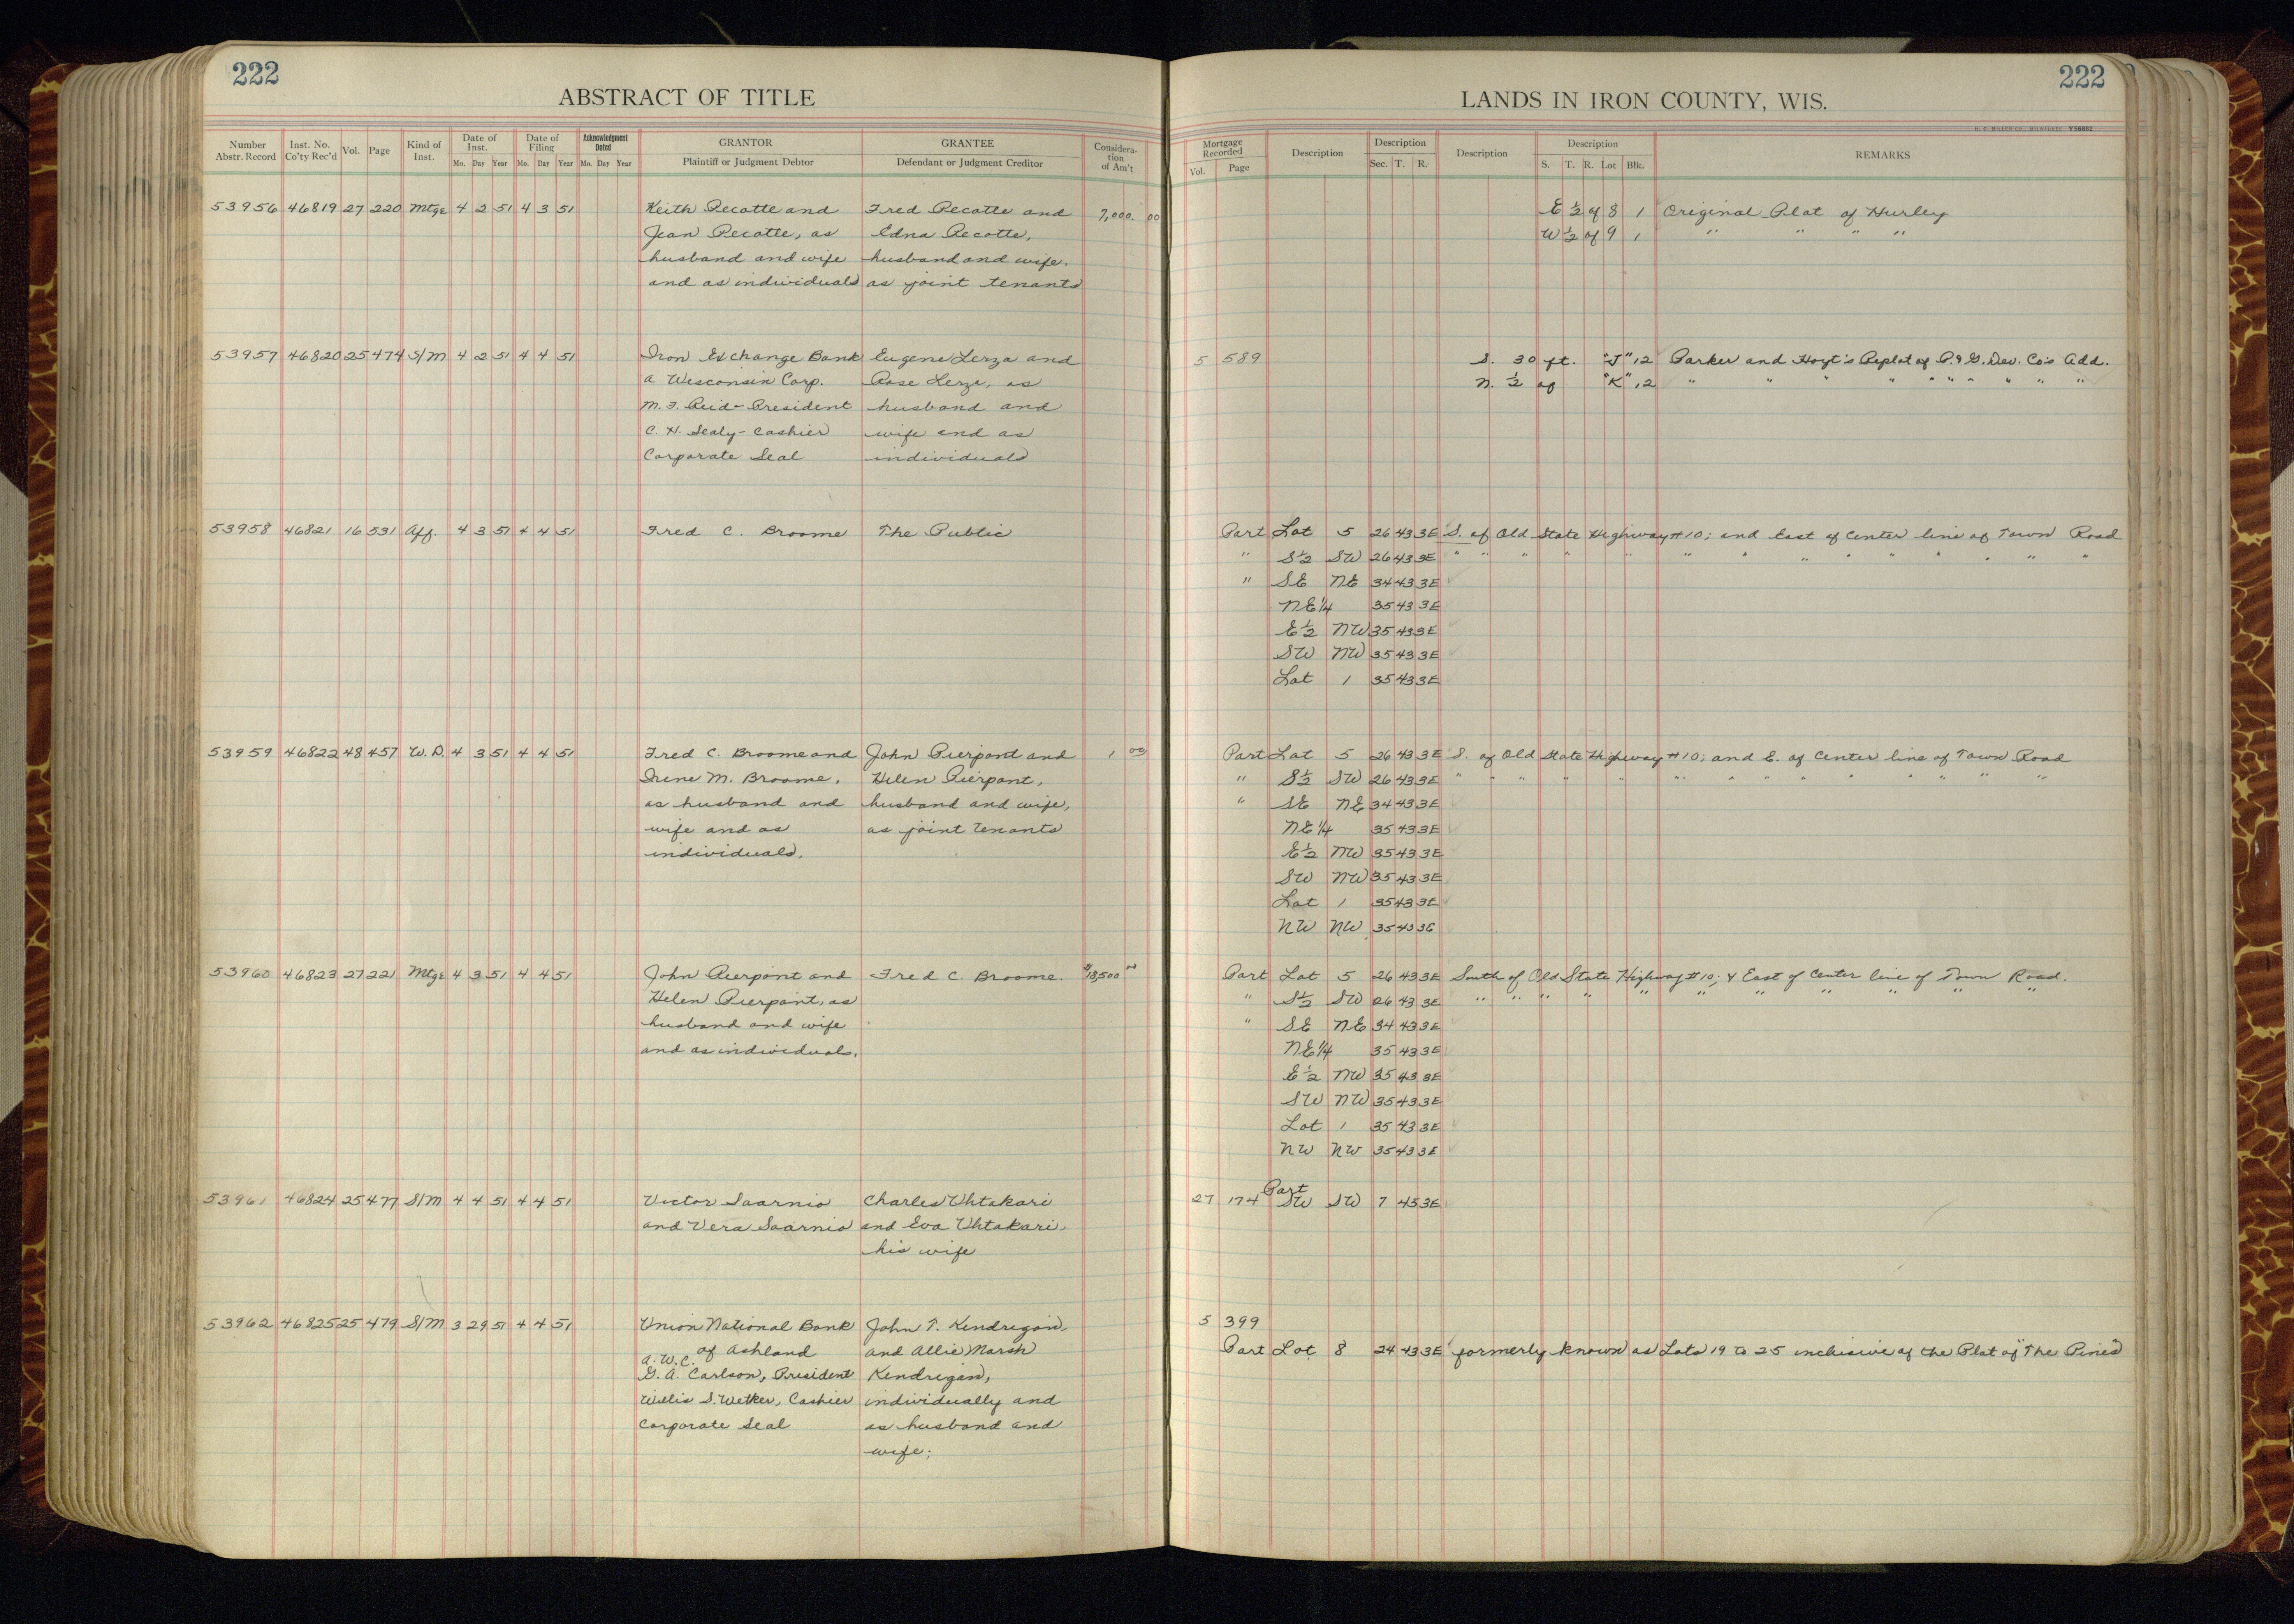 222
ABSTRACT OF TITLE
Number Abstr. Record | Inst. No. Co'ty Rec'd | Vol. | Page | Kind of Inst. | Date of Inst. Mo. Day Year | Date of Filing Mo. Day Year | Acknowledgment Dated Mo. Day Year | GRANTOR Plaintiff or Judgment Debtor | GRANTEE Defendant or Judgment Creditor | Considera-tion of Am't
53956 46819 27 220 Mtge 4 2 51 4 3 51 Keith Pecotte and Fred Pecotte and 7,000. 00
Jean Pecotte, as Edna Pecotte,
husband and wife husband and wife.
and as individuals as joint tenants
53957 46820 25 474 S/M 4 2 51 4 4 51 Iron Exchange Bank Eugene Lerza and
a Wisconsin Corp. Rose Lerza, as
M. F. Reid - President husband and
C. H. Sealy - Cashier wife and as
Corporate Seal individuals
53958 46821 16 531 Aff. 4 3 51 4 4 51 Fred C. Broome The Public
53959 46822 48 457 W.D. 4 3 51 4 4 51 Fred C. Broome and John Pierpont and 1 00
Irene M. Broome, Helen Pierpont,
as husband and husband and wife,
wife and as as joint tenants
individuals.
53960 46823 27 221 Mtge 4 3 51 4 4 51 John Pierpont and Fred C. Broome. $13,500
Helen Pierpont, as
husband and wife
and as individuals.
53961 46824 25 477 S/M 4 4 51 4 4 51 Victor Saarnio Charles Uhtakari
and Vera Saarnio and Eva Uhtakari,
his wife
53962 46825 25 479 S/M 3 29 51 4 4 51 Union National Bank John T. Kendrigan,
of Ashland and Allie Marsh
A.W.C.
G. A. Carlson, President Kendrigan,
Willis S. Wetker, Cashier individually and
Corporate Seal as husband and
wife;
222
LANDS IN IRON COUNTY, WIS.
H. C. MILLER CO., MILWAUKEE Y56052
Mortgage Recorded Vol. Page | Description | Description Sec. T. R. | Description | Description S. T. R. Lot Blk. | REMARKS
E 1/2 of 8 1 Original Plat of Hurley
W 1/2 of 9 1 " " " "
5 589 S. 30 ft. "J" 12 Parker and Hoyt's Replat of P. & G. Dev. Co's Add.
N. 1/2 of "K" 12 " " " " " " " " " "
Part Lot 5 26 43 3E S. of Old State Highway #10; and East of Center line of Town Road
" S 1/2 SW 26 43 3E " " " " " " " " " " " " "
" SE NE 34 43 3E
NE 1/4 35 43 3E
E 1/2 NW 35 43 3E
SW NW 35 43 3E
Lot 1 35 43 3E
Part Lot 5 26 43 3E S. of Old State Highway #10; and E. of Center line of Town Road
" S 1/2 SW 26 43 3E " " " " " " " " " " " " "
" SE NE 34 43 3E
NE 1/4 35 43 3E
E 1/2 NW 35 43 3E
SW NW 35 43 3E
Lot 1 35 43 3E
NW NW 35 43 3E
Part Lot 5 26 43 3E South of Old State Highway #10; & East of Center line of Town Road.
" S 1/2 SW 26 43 3E " " " " " " " " " " "
" SE NE 34 43 3E
NE 1/4 35 43 3E
E 1/2 NW 35 43 3E
SW NW 35 43 3E
Lot 1 35 43 3E
NW NW 35 43 3E
27 174 Part SW SW 7 45 3E
5 399
Part Lot 8 24 43 3E formerly known as Lots 19 to 25 inclusive of the Plat of "The Pines"